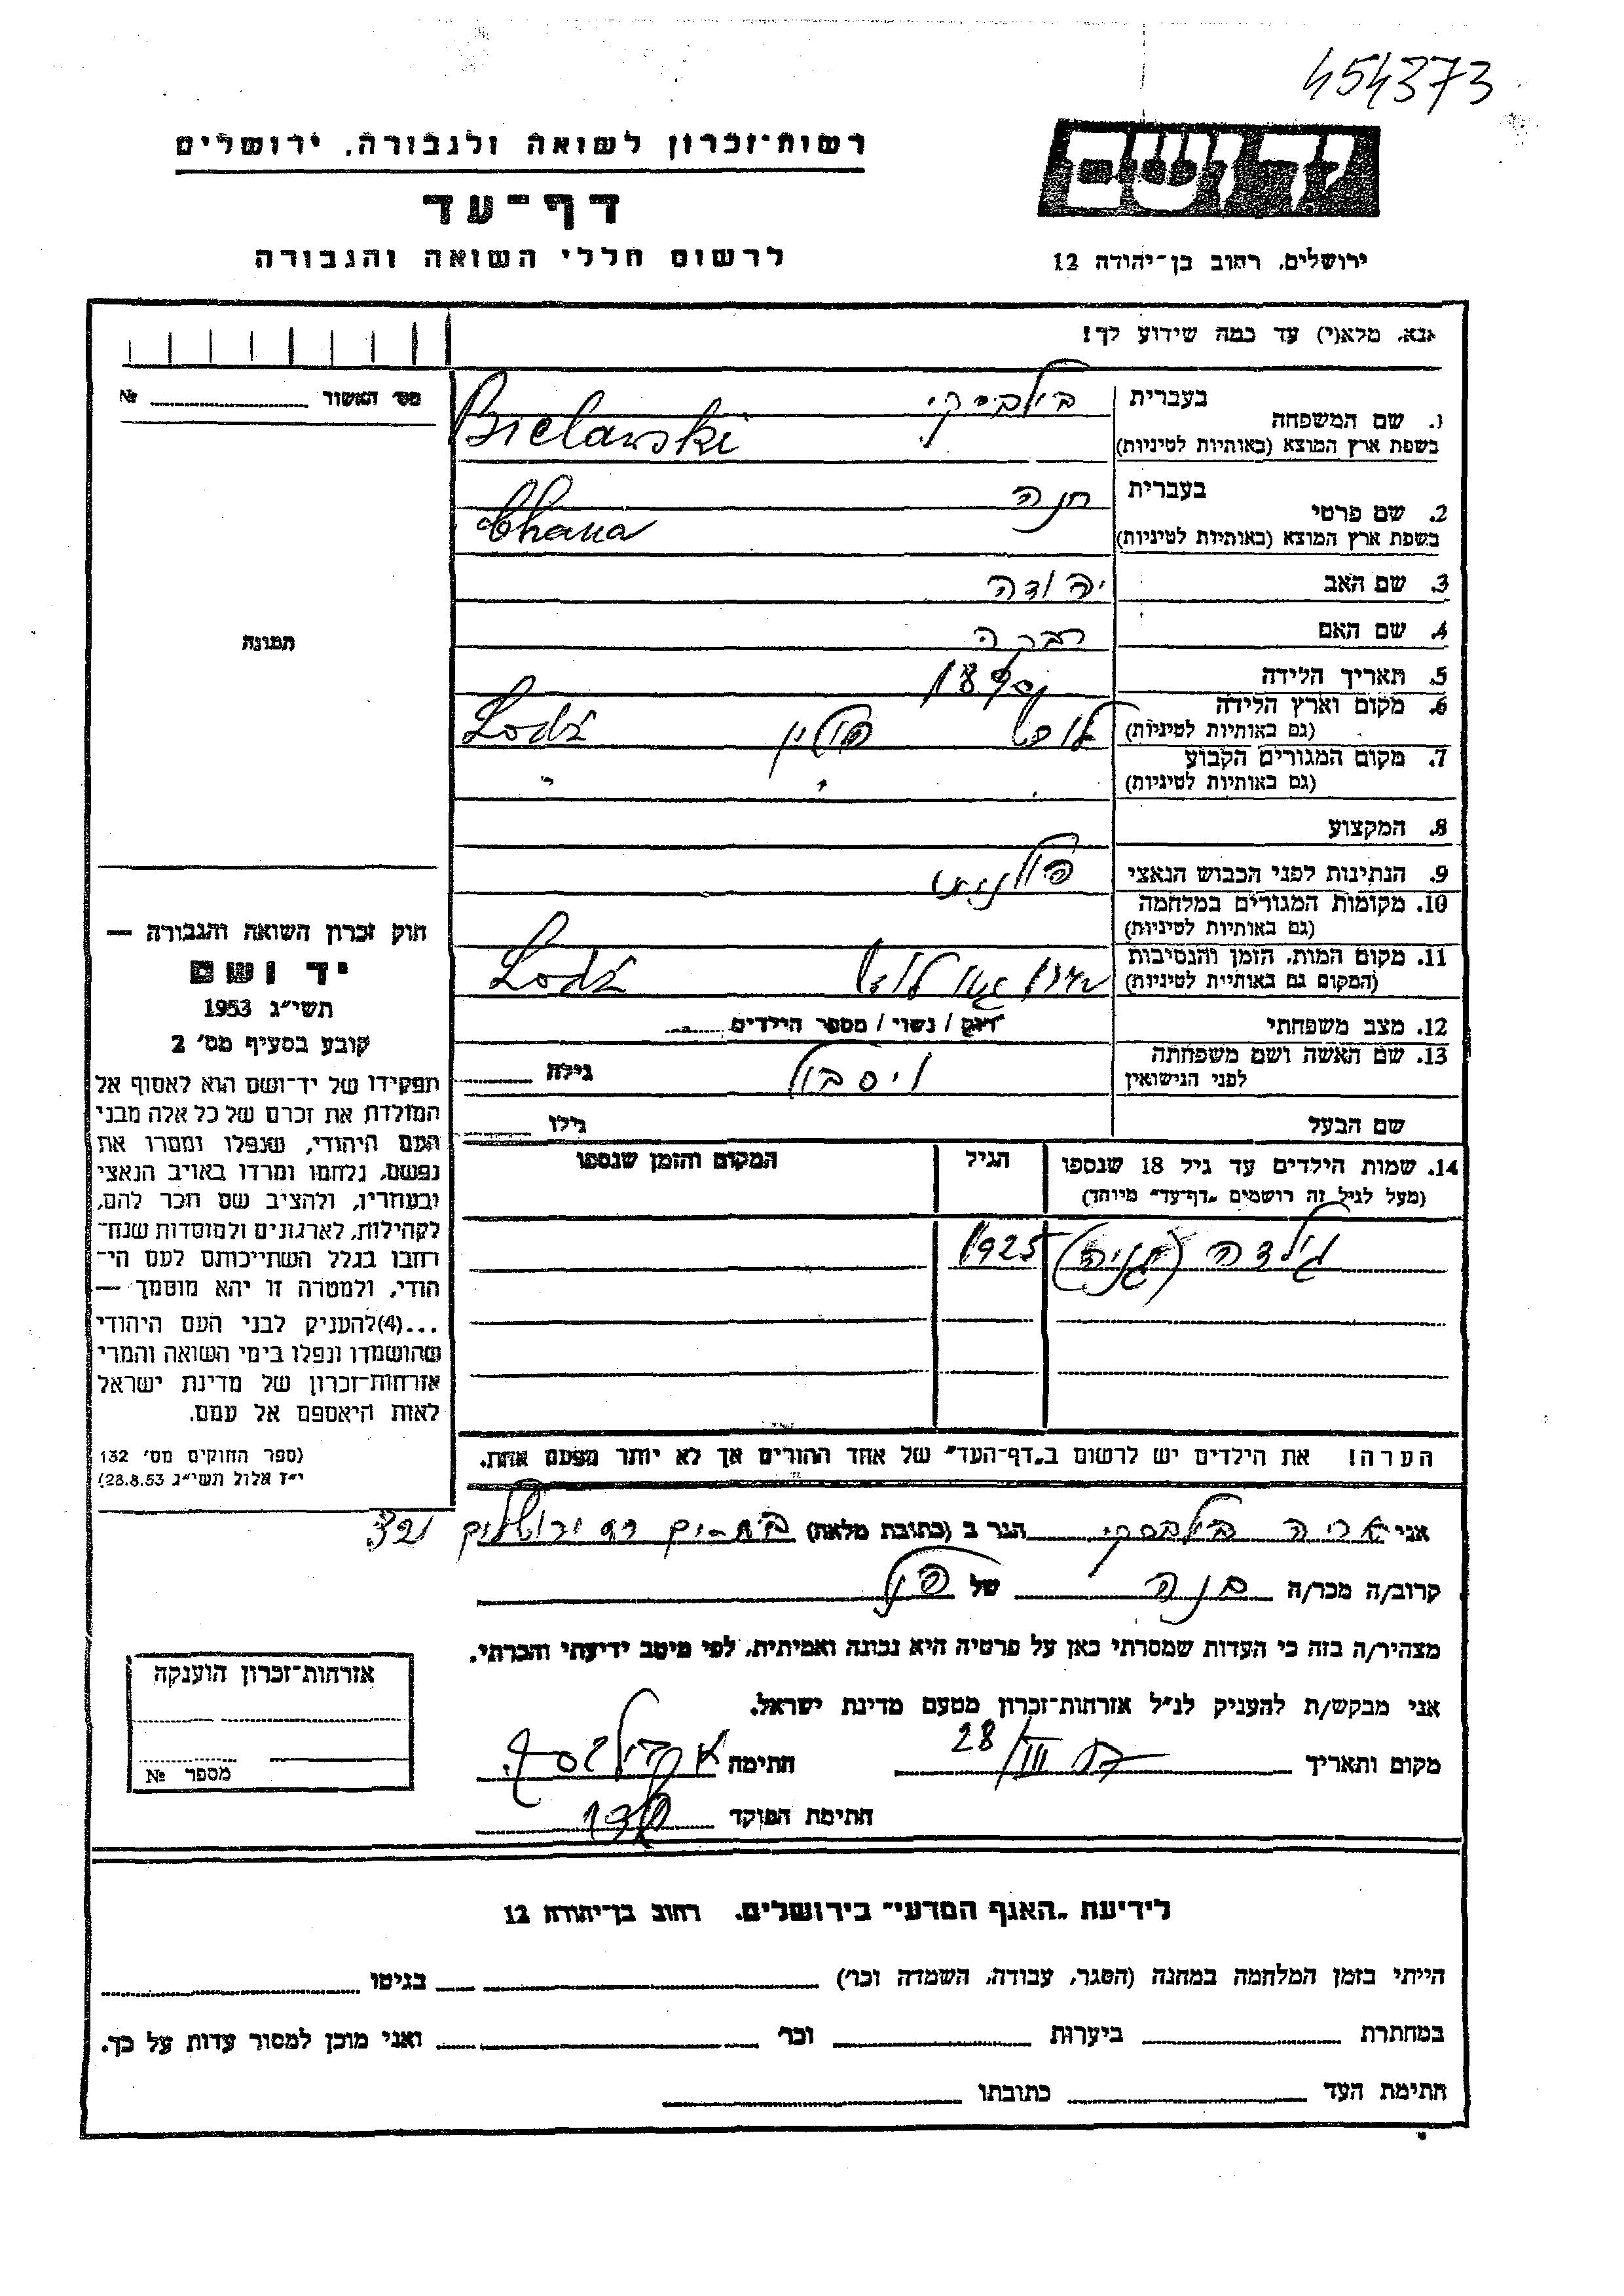 454373
רשות־זכרון לשואה ולגבורה. ירושלים
יד ושם
דף־עד
לרשום חללי השואה והגבורה
ירושלים. רחוב בן־יהודה 12
אנא. מלא(י) עד כמה שידוע לך!
מס׳ האשור № 
1. שם המשפחה
בעברית בילבסקי
בשפת ארץ המוצא (באותיות לטיניות) Bielawski
2. שם פרטי
בעברית חנה
בשפת ארץ המוצא (באותיות לטיניות) Chana
3. שם האב יהודה
4. שם האם רבקה
5. תאריך הלידה
6. מקום וארץ הלידה לודז׳ פולין Lodź
(גם באותיות לטיניות)
7. מקום המגורים הקבוע " " "
(גם באותיות לטיניות)
8. המקצוע
9. הנתינות לפני הכבוש הנאצי פולנית
10. מקומות המגורים במלחמה
(גם באותיות לטיניות)
11. מקום המות. הזמן והנסיבות גטו לודז׳ Lodź
(המקום גם באותיות לטיניות)
12. מצב משפחתי רווק / נשוי / מספר הילדים
13. שם האשה ושם משפחתה גילה
לפני הנישואין
שם הבעל גילו
14. שמות הילדים עד גיל 18 שנספו הגיל המקום והזמן שנספו
(מעל לגיל זה רושמים „דף־עד״ מיוחד)
1925
הערה! את הילדים יש לרשום ב„דף־העד״ של אחד ההורים אך לא יותר מפעם אחת.
תמונה
חוק זכרון השואה והגבורה —
יד ושם
תשי״ג 1953
קובע בסעיף מס׳ 2
תפקידו של יד־ושם הוא לאסוף אל
המולדת את זכרם של כל אלה מבני
העם היהודי, שנפלו ומסרו את
נפשם, נלחמו ומרדו באויב הנאצי
ובעוזריו, ולהציב שם וזכר להם,
לקהילות, לארגונים ולמוסדות שנח־
רחבו בגלל השתייכותם לעם הי־
הודי, ולמטרה זו יהא מוסמך —
...(4)להעניק לבני העם היהודי
שהושמדו ונפלו בימי השואה והמרי
אזרחות־זכרון של מדינת ישראל
לאות היאספם אל עמם.
(ספר החוקים מס׳ 132
י״ז אלול תשי״ג 28.8.53)
אני אריה בילבסקי הגר ב (כתובת מלאה) בת־ים רח ירושלים
קרוב/ה מכר/ה בנה של
מצהיר/ה בזה כי העדות שמסרתי כאן על פרטיה היא נכונה ואמיתית. לפי מיטב ידיעתי והכרתי.
אני מבקש/ת להעניק לנ״ל אזרחות־זכרון מטעם מדינת ישראל.
מקום ותאריך 28/III חתימה
חתימת הפוקד
אזרחות־זכרון הוענקה
מספר №
לידיעת „האגף המדעי״ בירושלים. רחוב בן־יהודה 12
הייתי בזמן המלחמה במחנה (הסגר. עבודה. השמדה וכו׳) בגיטו
במחתרת ביערות וכו׳ ואני מוכן למסור עדות על כך.
חתימת העד כתובתו